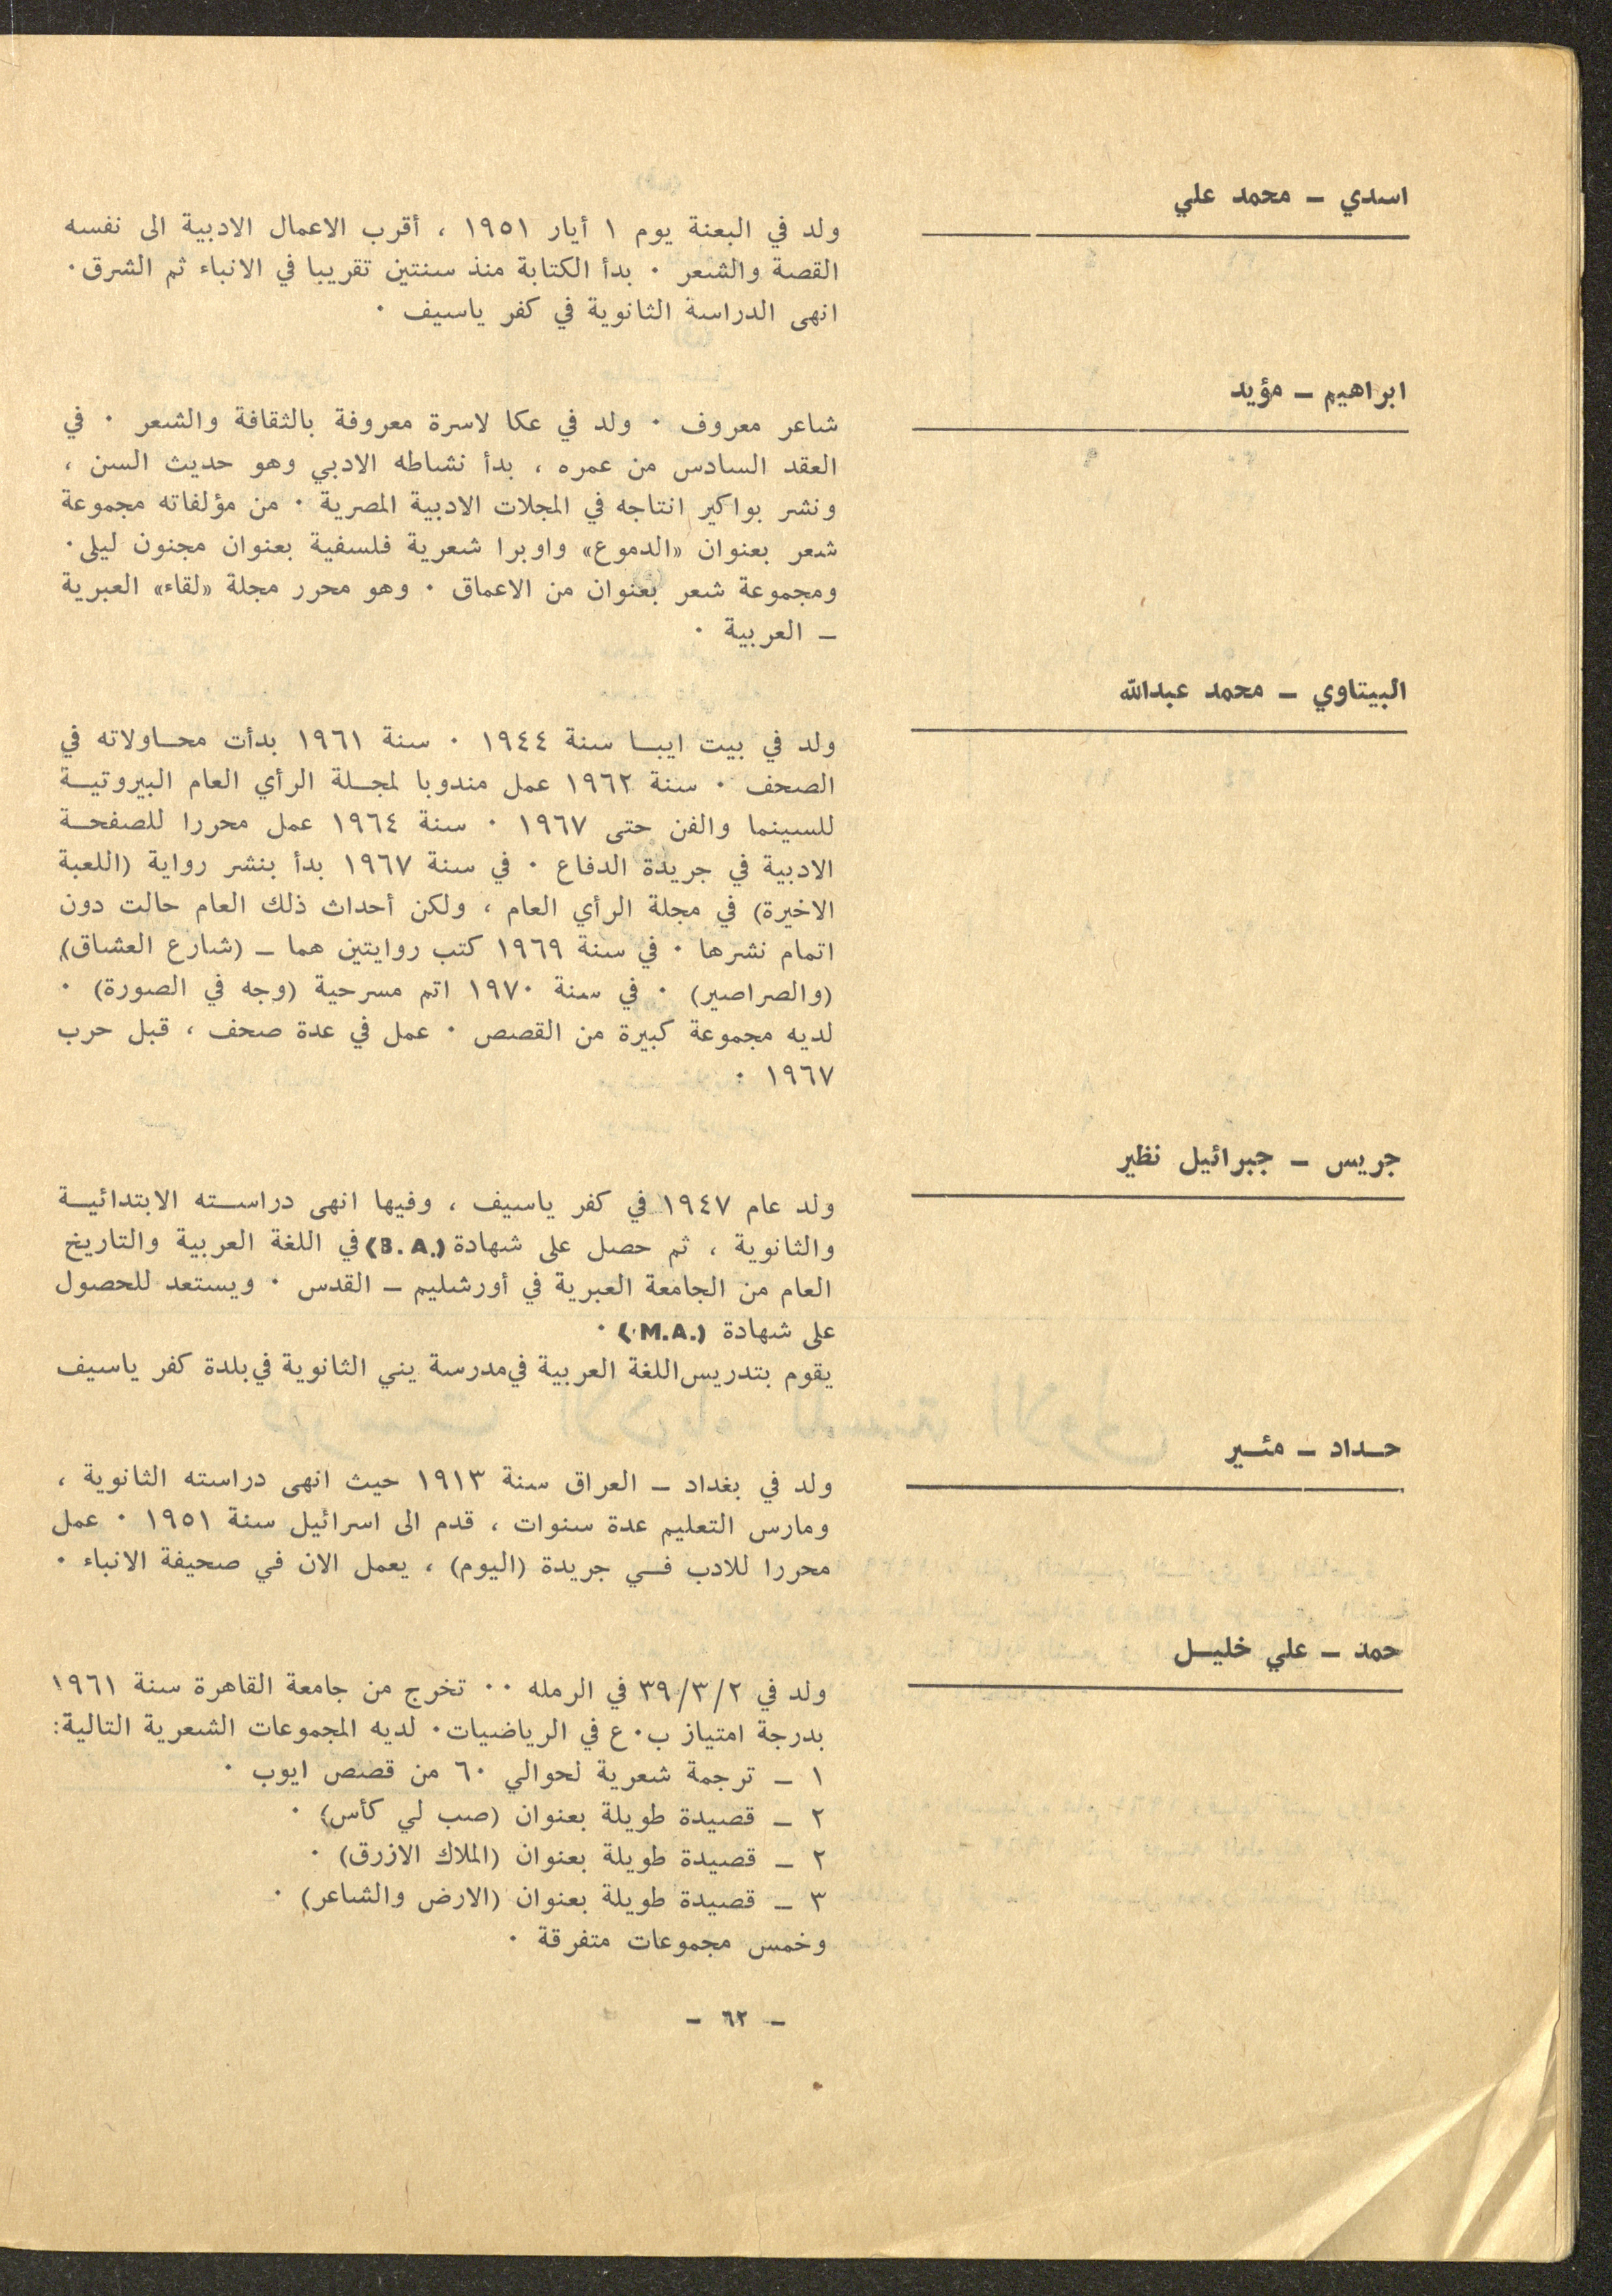 اسدي – محمد علي
ولد في البعنة يوم ١ أيار ١٩٥١ ، أقرب الاعمال الادبية الى نفسه
القصة والشعر · بدأ الكتابة منذ سنتين تقريبا في الانباء ثم الشرق·
انهى الدراسة الثانوية في كفر ياسيف ·
ابراهيم – مؤيد
شاعر معروف · ولد في عكا لاسرة معروفة بالثقافة والشعر · في
العقد السادس من عمره ، بدأ نشاطه الادبي وهو حديث السن ،
ونشر بواكير انتاجه في المجلات الادبية المصرية · من مؤلفاته مجموعة
شعر بعنوان «الدموع» واوبرا شعرية فلسفية بعنوان مجنون ليلى·
ومجموعة شعر بعنوان من الاعماق · وهو محرر مجلة «لقاء» العبرية
– العربية ·
البيتاوي – محمد عبدالله
ولد في بيت ايبـا سنة ١٩٤٤ · سنة ١٩٦١ بدأت محـاولاته في
الصحف · سنة ١٩٦٢ عمل مندوبا لمجـلة الرأي العام البيروتيـة
للسينما والفن حتى ١٩٦٧ · سنة ١٩٦٤ عمل محررا للصفحـة
الادبية في جريدة الدفاع · في سنة ١٩٦٧ بدأ بنشر رواية (اللعبة
الاخيرة) في مجلة الرأي العام ، ولكن أحداث ذلك العام حالت دون
اتمام نشرها · في سنة ١٩٦٩ كتب روايتين هما – (شارع العشاق)
(والصراصير) · في سنة ١٩٧٠ اتم مسرحية (وجه في الصورة) ·
لديه مجموعة كبيرة من القصص · عمل في عدة صحف ، قبل حرب
١٩٦٧ ·
جريس – جبرائيل نظير
ولد عام ١٩٤٧ في كفر ياسيف ، وفيها انهى دراسـته الابتدائيـة
والثانوية ، ثم حصل على شهادة (B.A.) في اللغة العربية والتاريخ
العام من الجامعة العبرية في أورشليم – القدس · ويستعد للحصول
على شهادة (M.A.) ·
يقوم بتدريس اللغة العربية في مدرسة يني الثانوية في بلدة كفر ياسيف
حـداد – مئـير
ولد في بغداد – العراق سنة ١٩١٣ حيث انهى دراسته الثانوية ،
ومارس التعليم عدة سنوات ، قدم الى اسرائيل سنة ١٩٥١ · عمل
محررا للادب فـي جريدة (اليوم) ، يعمل الان في صحيفة الانباء ·
حمد – علي خليـل
ولد في ٣٩/٣/٢ في الرمله ·· تخرج من جامعة القاهرة سنة ١٩٦١
بدرجة امتياز ب·ع في الرياضيات· لديه المجموعات الشعرية التالية:
١ – ترجمة شعرية لحوالي ٦٠ من قصص ايوب ·
٢ – قصيدة طويلة بعنوان (صب لي كأس) ·
٢ – قصيدة طويلة بعنوان (الملاك الازرق) ·
٣ – قصيدة طويلة بعنوان (الارض والشاعر) ·
وخمس مجموعات متفرقة ·
– ٦٢ –